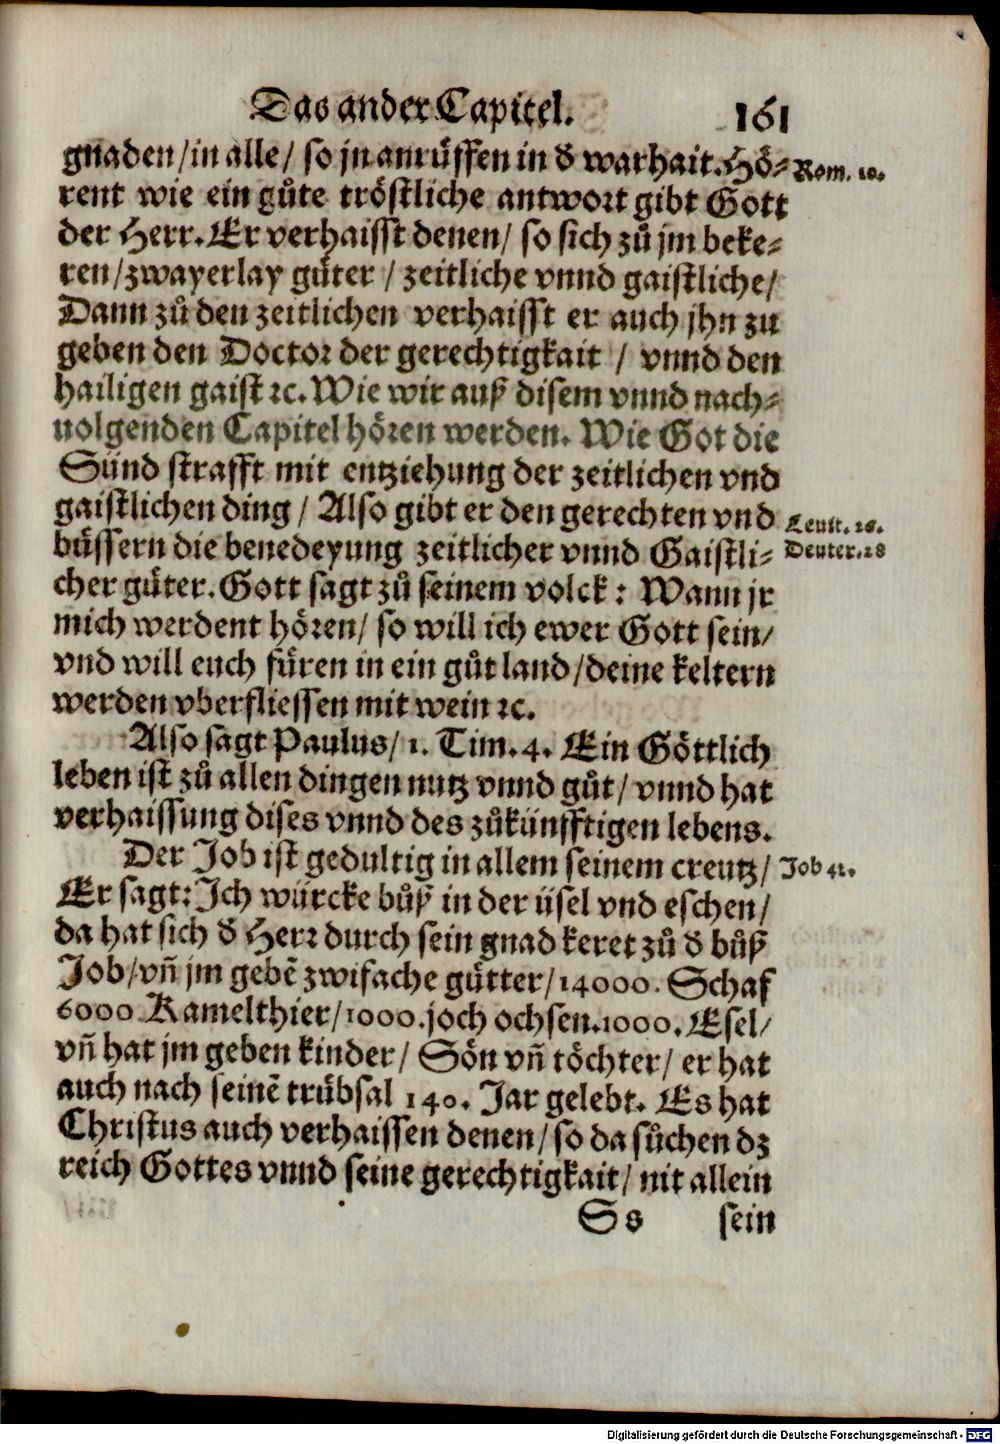 Das ander Capitel. 161
gnaden/in alle/ so jn anrüffen in d̕ warhait. Hö⸗ Rom. 10.
rent wie ein gůte tröstliche antwort gibt Gott
der Herr. Er verhaisst denen/ so sich zů jm beke⸗
ren/zwayerlay gůter / zeitliche vnnd gaistliche/
Dann zů den zeitlichen verhaisst er auch jhn zu
geben den Doctor der gerechtigkait / vnnd den
hailigen gaist ꝛc. Wie wir auß disem vnnd nach⸗
uolgenden Capitel hören werden. Wie Got die
Sünd strafft mit entziehung der zeitlichen vnd
gaistlichen ding / Also gibt er den gerechten vnd Leuit. 26.
büssern die benedeyung zeitlicher vnnd Gaistli⸗ Deuter. 28
cher gůter. Gott sagt zů seinem volck : Wann jr
mich werdent hören/ so will ich ewer Gott sein/
vnd will euch füren in ein gůt land/deine keltern
werden vberfliessen mit wein ꝛc.
Also sagt Paulus/ 1. Tim. 4. Ein Göttlich
leben ist zů allen dingen nutz vnnd gůt/ vnnd hat
verhaissung dises vnnd des zůkünfftigen lebens.
Der Job ist gedultig in allem seinem creutz/ Job 42.
Er sagt: Ich würcke bůß in der üsel vnd eschen/
da hat sich d̕ Herr durch sein gnad keret zů d̕ bůß
Job/vñ jm gebẽ zwifache gütter/14000. Schaf
6000 Kamelthier/1000. joch ochsen. 1000. Esel/
vñ hat jm geben kinder/ Sön vñ töchter/ er hat
auch nach seinẽ trübsal 140. Jar gelebt. Es hat
Christus auch verhaissen denen/ so da sůchen dz
reich Gottes vnnd seine gerechtigkait/ nit allein
Ss sein
Digitalisierung gefördert durch die Deutsche Forschungsgemeinschaft - DFG